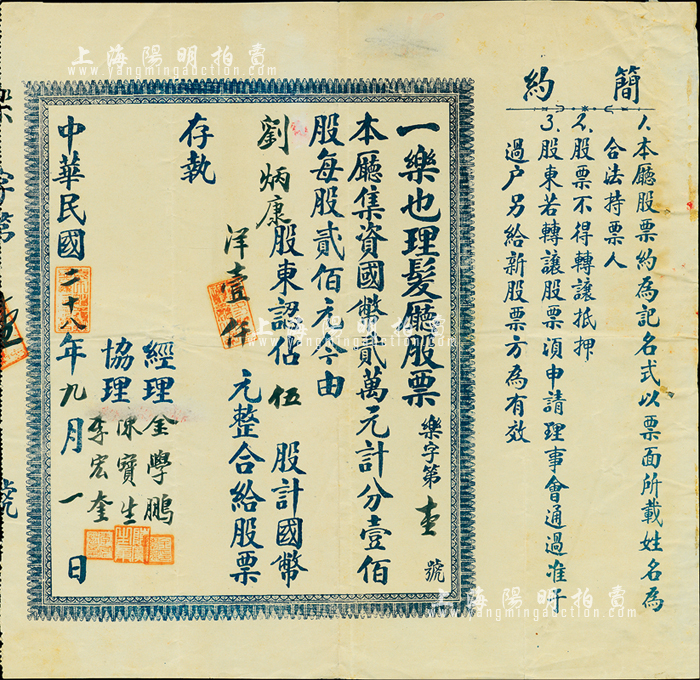 上海陽明拍賣
www.yangmingauction.com
簡約
1、本廳股票約為記名式以票面所載姓名為
合法持票人
2、股票不得轉讓抵押
3、股東若轉讓股票須申請理事會通過准予
過户另給新股票方為有效
一樂也理髮廳股票 樂字第壹號
本廳集資國幣貳萬元計分壹佰
股每股貳佰元今由
劉炳康股東認佔伍股計國幣
洋壹仟元整合給股票
存執
經理 金學鵬
協理 陳寶生
李宏奎
中華民國二十八年九月一日
字第
號
上海陽明拍賣
www.yangmingauction.com
上海陽明拍賣
www.yangmingauction.com